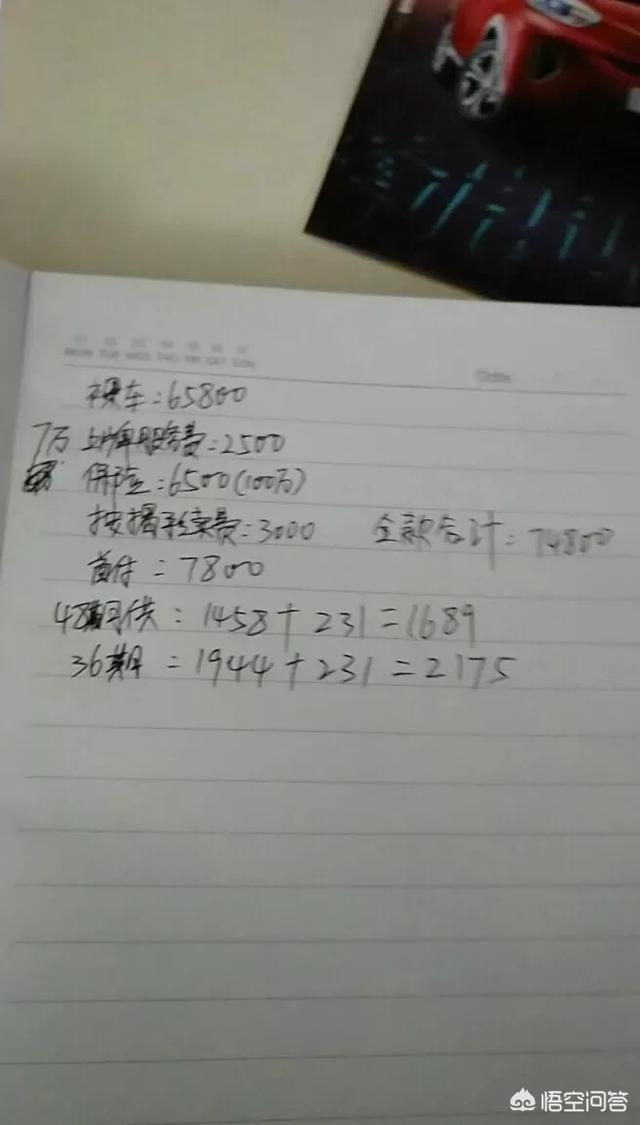 MON TUE WED THU FRI SAT SUN
Date
裸车:65800
7万 上牌服务费:2500
保险:6500(100万)
按揭手续费:3000 全款合计:74800
首付:7800
48期月供:1458+231=1689
36期=1944+231=2175
悟空问答